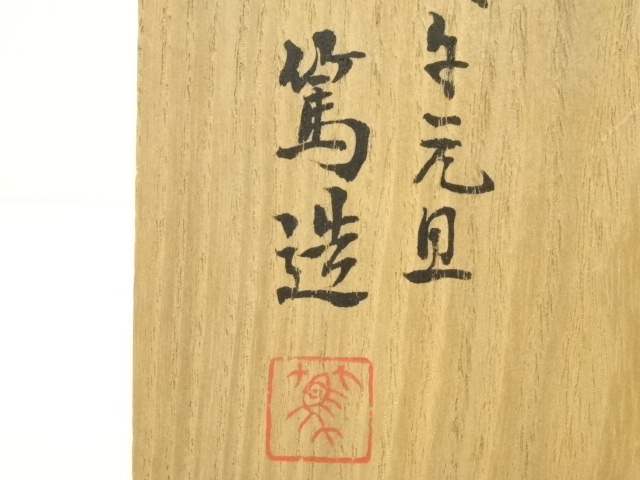 午元旦
篤造
篤